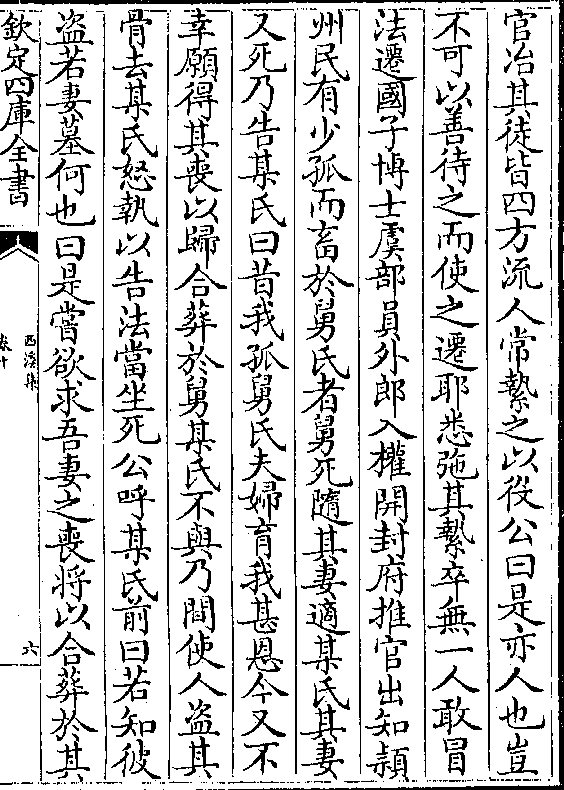 官冶其徒皆四方流人常縶之以役公曰是亦人也豈
不可以善待之而使之遷耶悉弛其縶卒無一人敢冒
法遷國子博士虞部員外郎入權開封府推官出知潁
州民有少孤而畜於舅氏者舅死隨其妻適某氏其妻
又死乃告某氏曰昔我孤舅氏夫婦育我甚恩今又不
幸願得其喪以歸合葬於舅某氏不與乃間使人盗其
骨去某氏怒執以告法當坐死公呼某氏前曰若知彼
盗若妻墓何也曰是嘗欲求吾妻之喪將以合葬於其
欽定四庫全書
西溪集
卷十
六